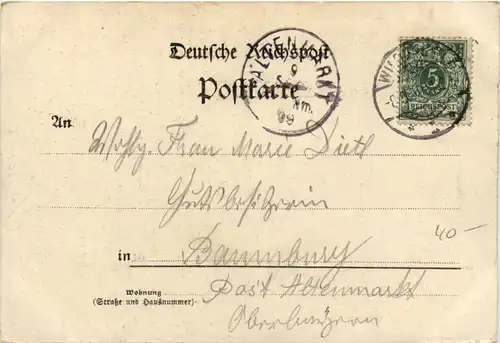 Deutsche Reichspost
Postkarte
ALTENMARKT
9
Nm.
99
5
REICHSPOST
An
Wohlg. Frau Marie Dietl
Gutsbesitzerin
in Baumburg
Wohnung
(Straße und Hausnummer)
Post Altenmarkt
Oberbayern
40-